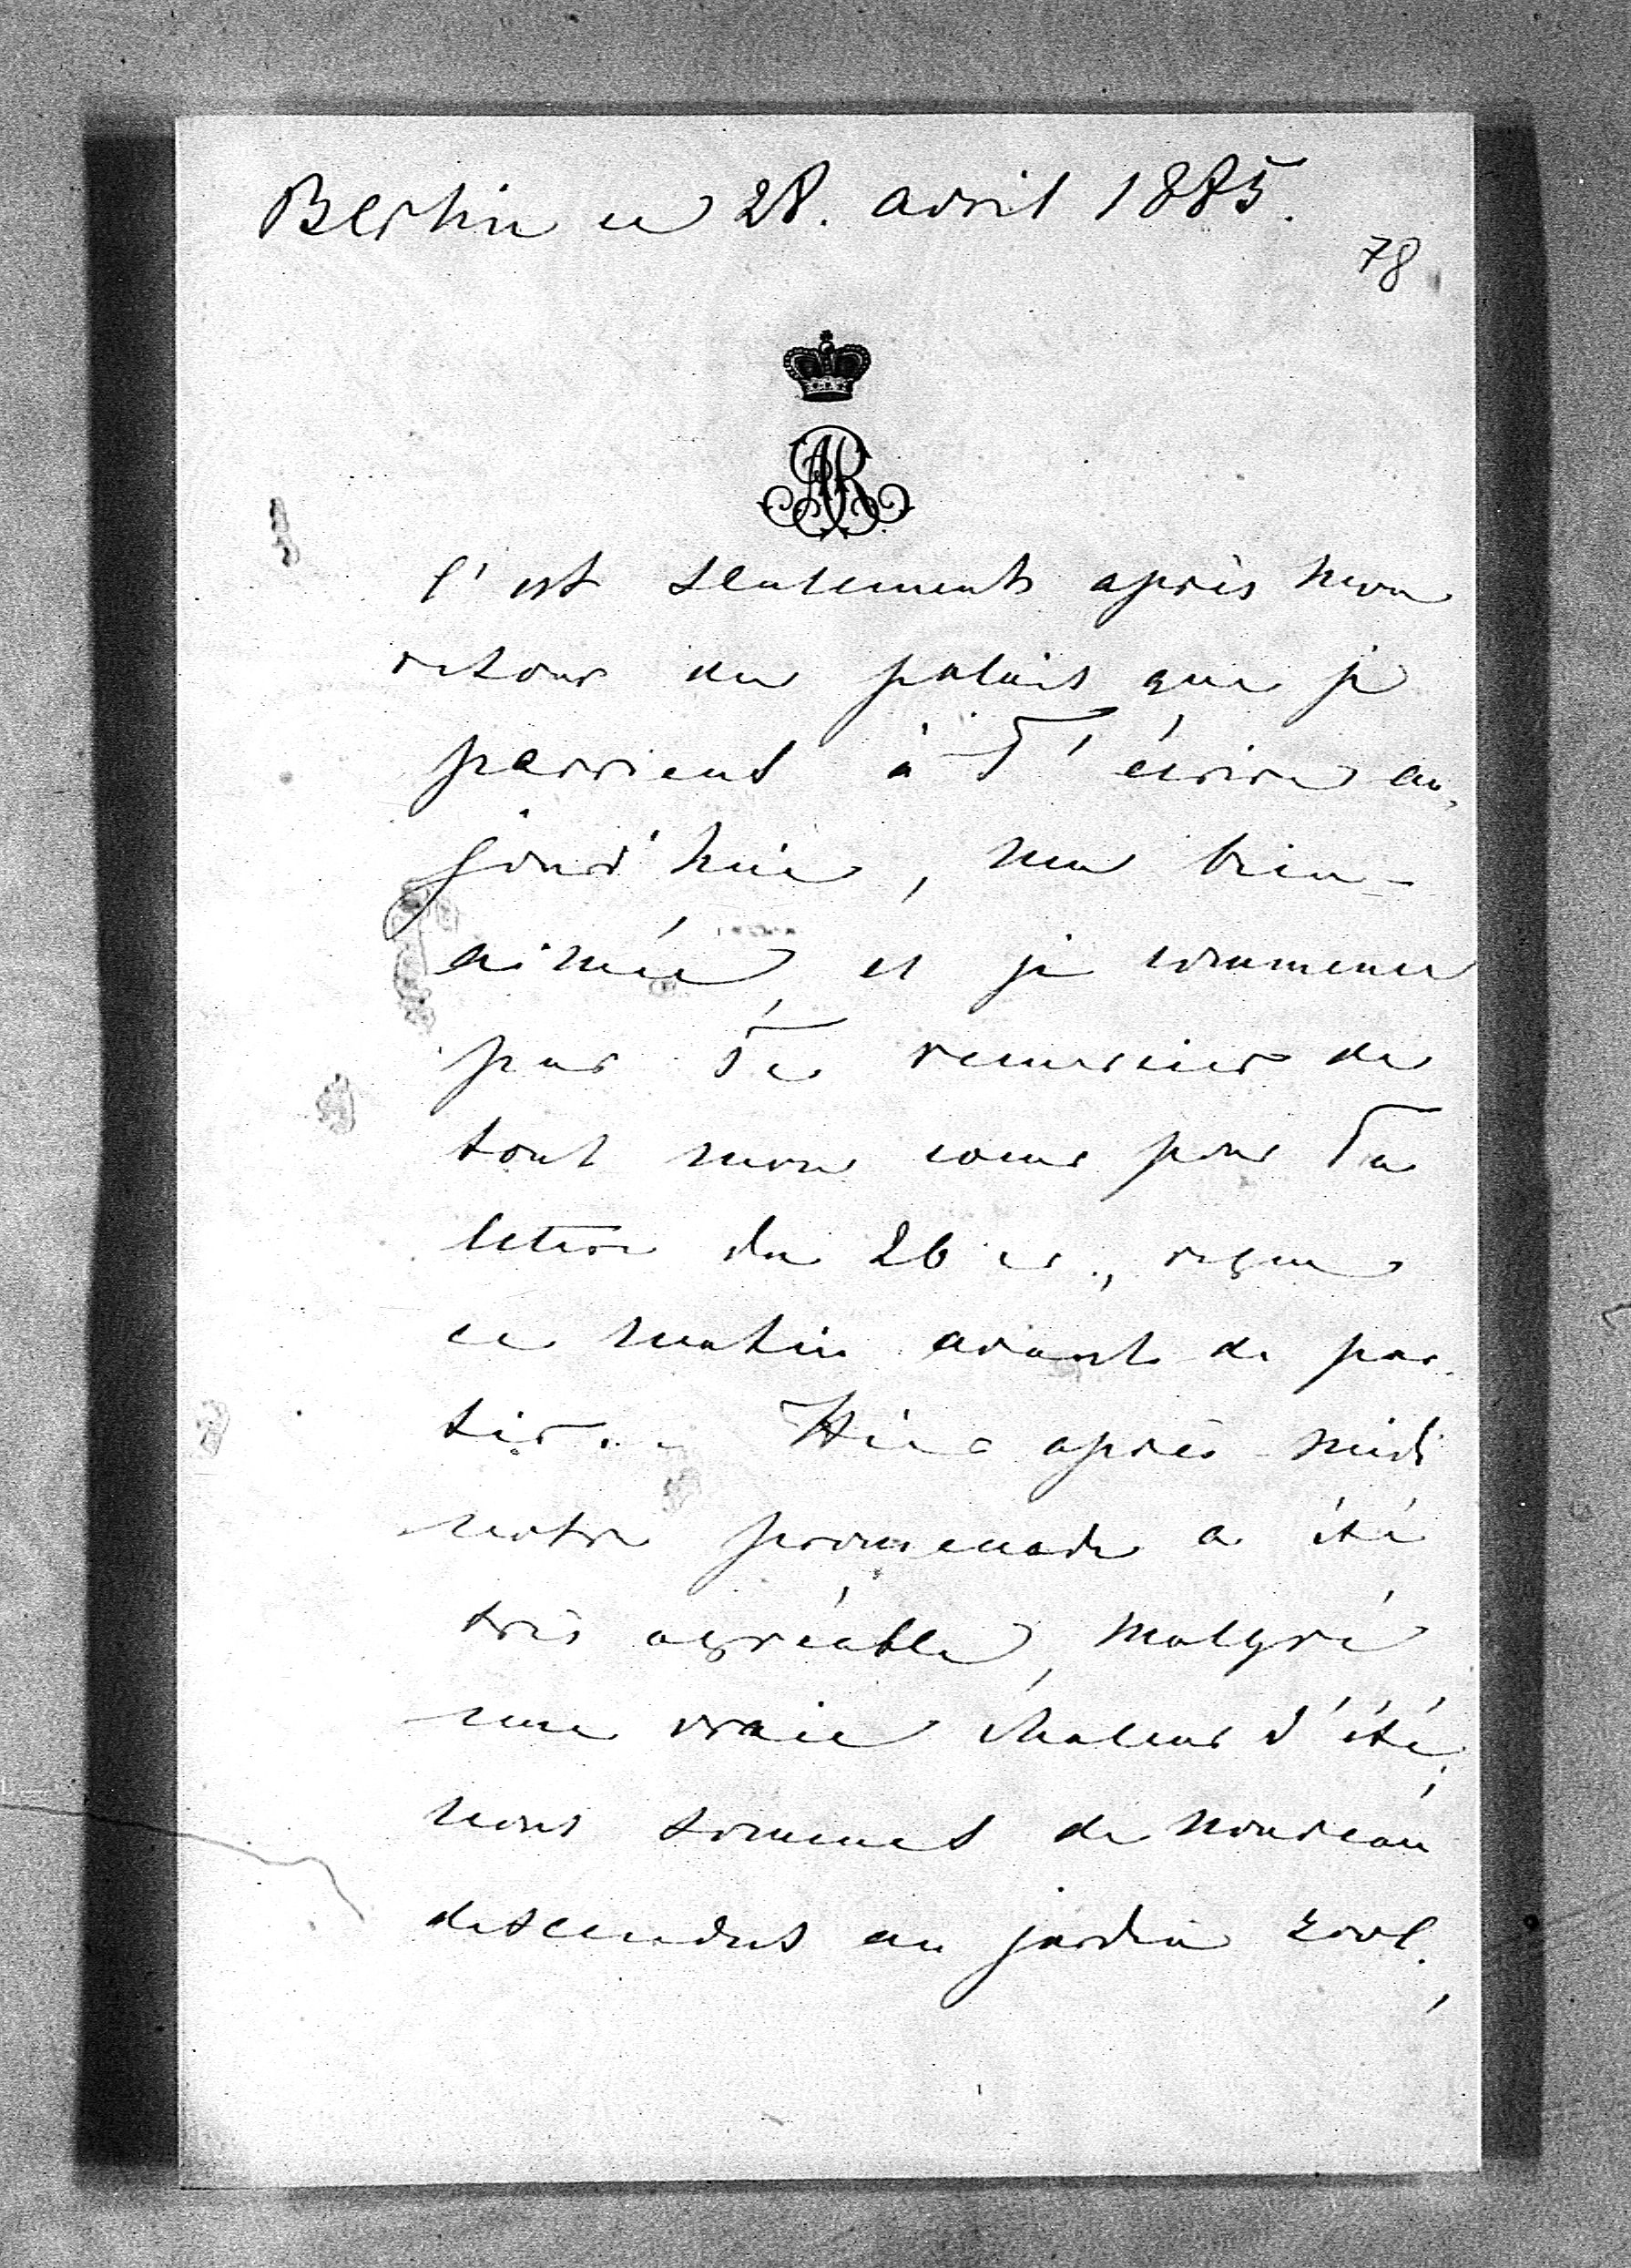 Berlin ce 28. avril 1885.
78
AR
C'est seulement après mon
retour du palais que je
parviens à T'écrire au,
jourd'hui, ma bien-
aimée, et je commence
par Te remercier de
tout mon coeur pour Ta
lettre du 26 cr., reçue
ce matin avant de par-
tir. Hier après-midi
notre promenade a été
très agréable, malgré
une vraie chaleur d'été;
nous sommes de nouveau
descendus au jardin zool.,